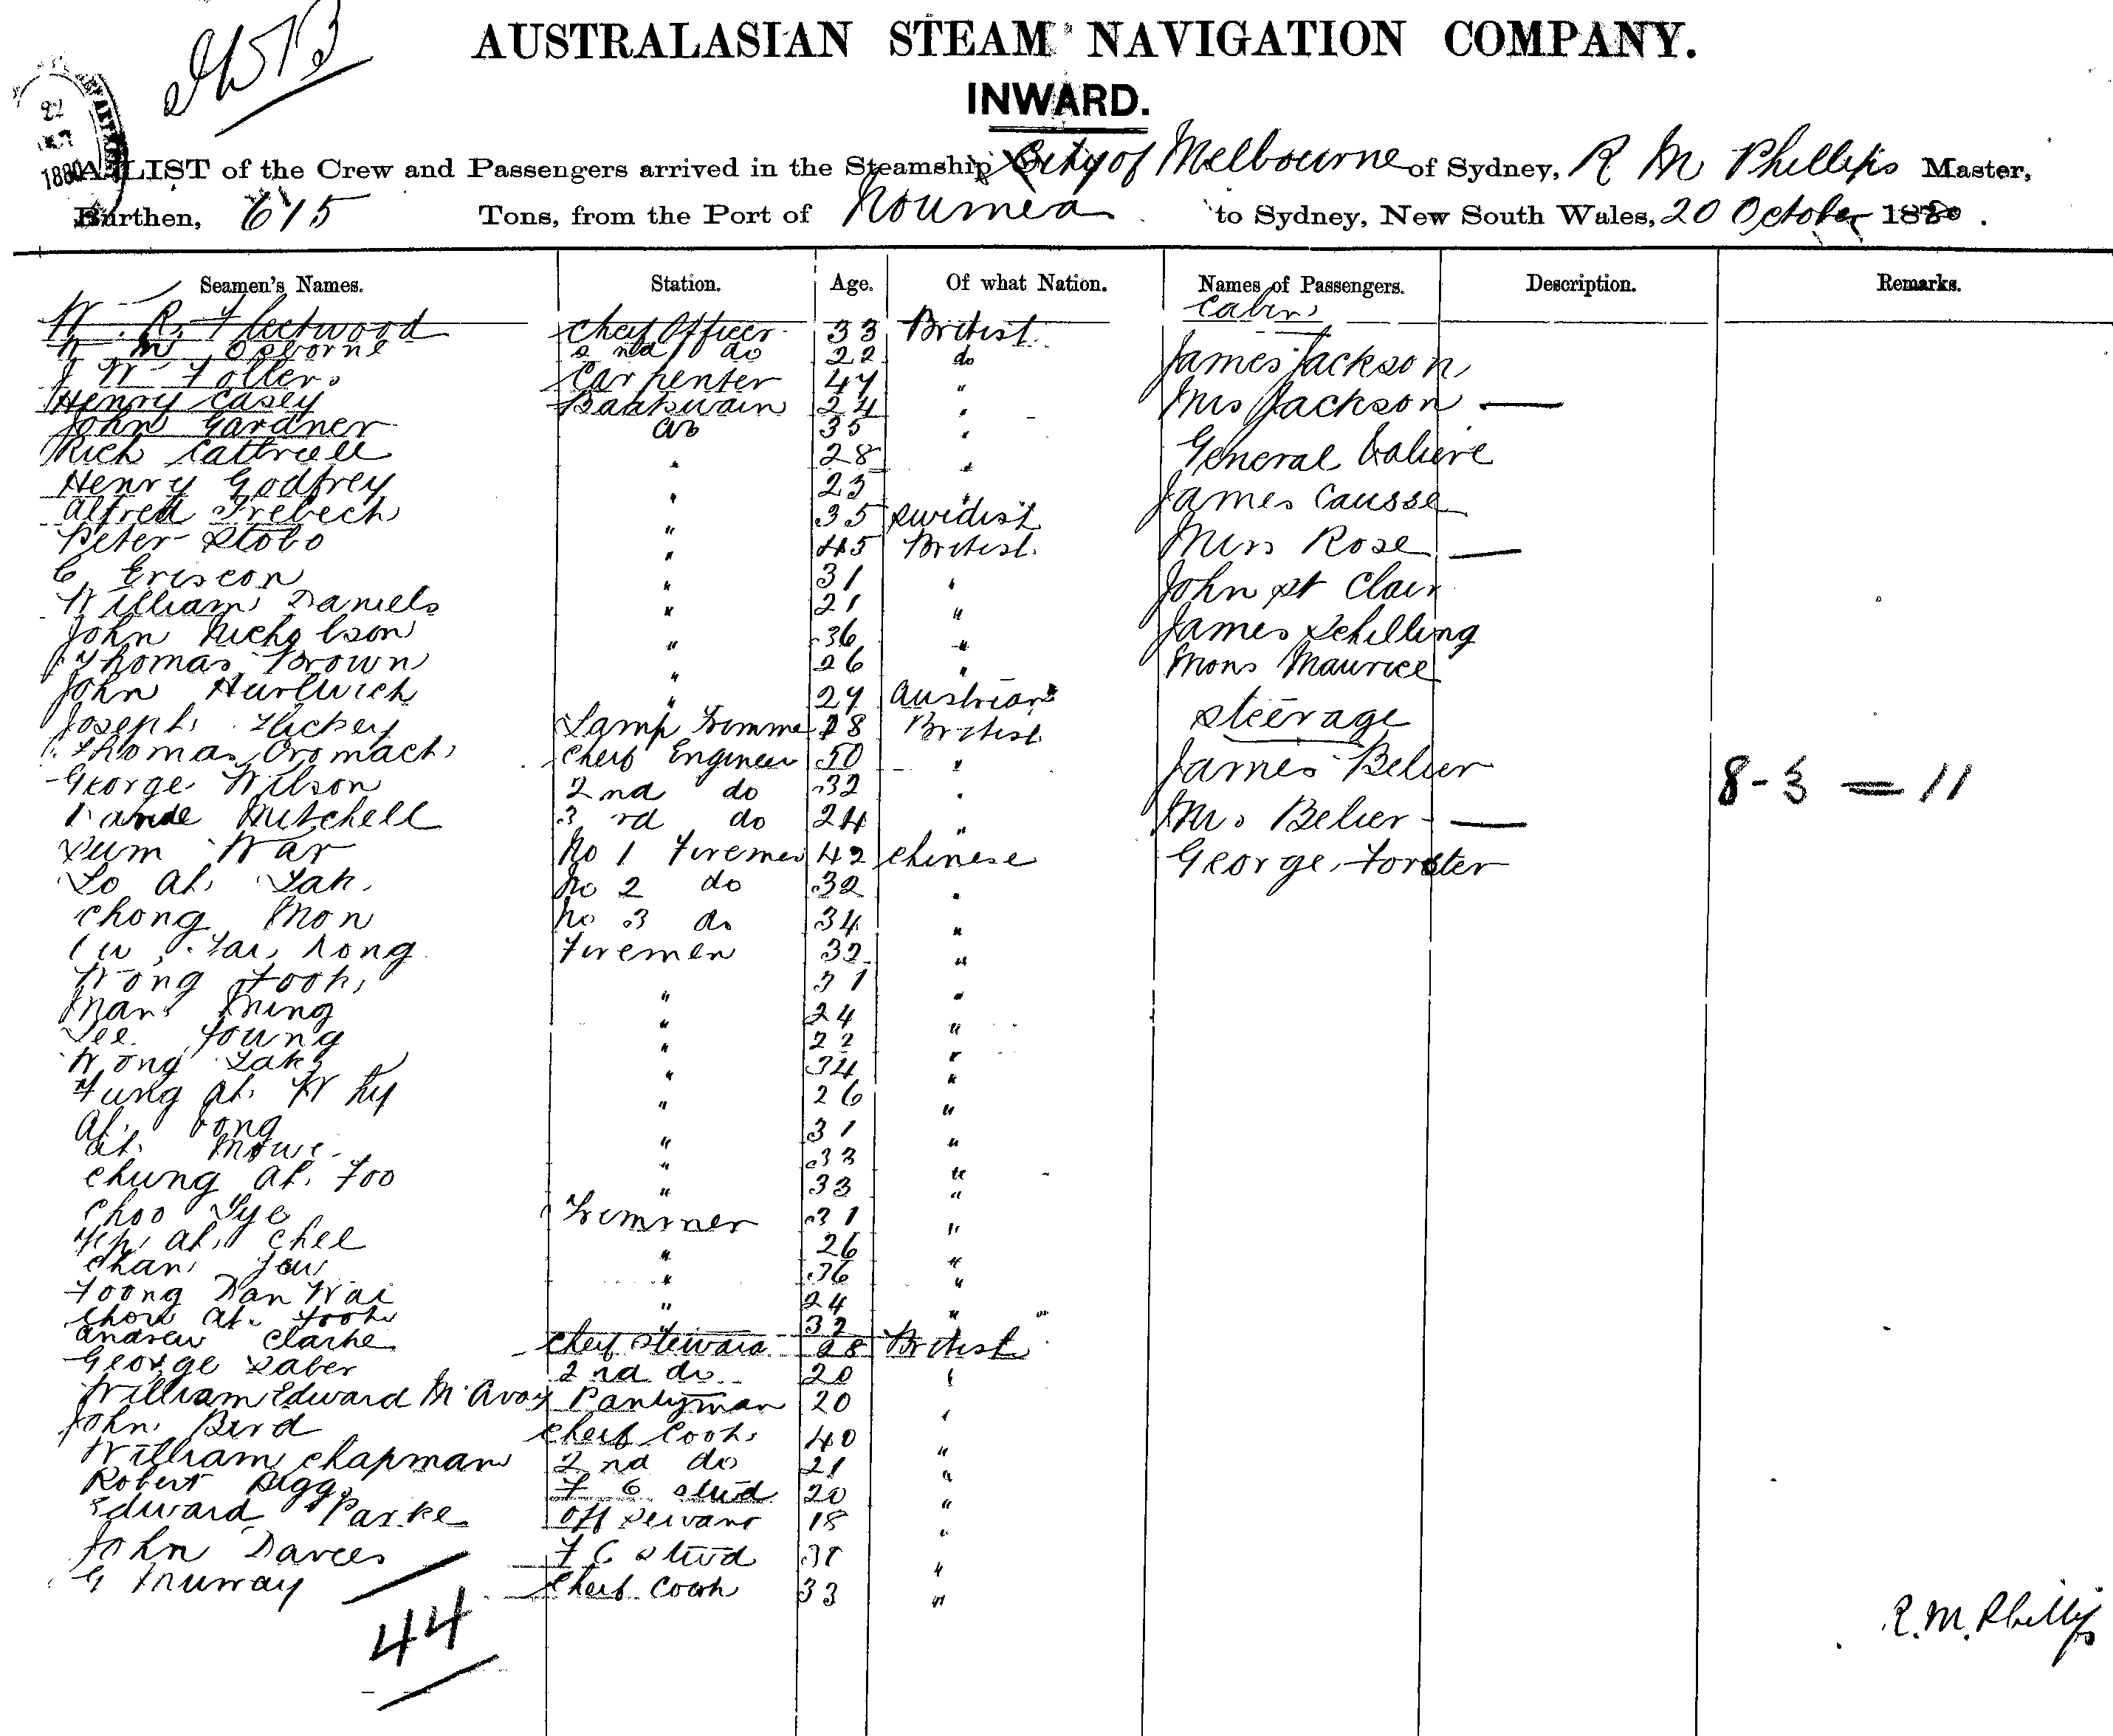 AUSTRALASIAN STEAM NAVIGATION COMPANY.
INWARD.
1880
A LIST of the Crew and Passengers arrived in the Steamship City of Melbourne of Sydney, R M Phillips Master,
Burthen, 615 Tons, from the Port of Noumea to Sydney, New South Wales, 20 October 1880.
Seamen's Names. Station. Age. Of what Nation. Names of Passengers. Description. Remarks.
Cabin
W. R. Fleetwood Cheif Officer 33 British
M Osborne 2nd do 22 do James Jackson
J W Carpenter 47 "
Henry Casey Boatswain 24 " Mrs Jackson —
John Gardner ab 35 "
Rich Cattrell " 28 " General
Henry Godfrey " 23 "
Alfred Trebech " 35 Swidish James Causse
Peter Stobo " 45 British Miss Rose —
C Ericson " 31 "
William Daniels " 21 " John St Clair
John Nicholson " 36 " James Schilling
Thomas Brown " 26 " Mons Maurice
John " 27 Austrian
Joseph Hickey Lamp Trimmer 18 British Steerage
Thomas Cromack Cheif Engineer 50 " James Belier
George Wilson 2nd do 32 " 8-3 = 11
Mitchell 3rd do 24 " Mrs Belier —
Sum War No 1 Firemen 42 Chinese George Forster
Lo Ah Tak No 2 do 32 "
Chong Mon No 3 do 34 "
Tai Firemen 32 "
Wong Fook " 31 "
Man Ming " 24 "
Lee Young " 22 "
Wong Tak " 34 "
Fung Ah Why " 26 "
Ah " 31 "
Ah Mowe " 33 "
Chung Ah Foo " 33 "
Choo Lye Trimmer 31 "
Yip Ah Chee " 26 "
Chan " 36 "
Foong Dan Wai " 24 "
Chow Ah Fook " 32 "
Andrew Clarke Cheif Steward 28 British
George Saber 2nd do 20 "
William Edward McAvoy Pantyman 20 "
John Bird Cheif Cook 40 "
William Chapman 2nd do 21 "
Robert F C Stud 20 "
Edward Parke Off Servant 18 "
John Davees F C Stud 31 "
G Murray Cheif Cook 33 "
44
R. M. Phillips